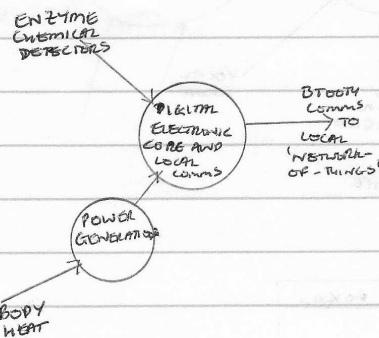 ENZYME
CHEMICAL
DETECTORS
DIGITAL
ELECTRONIC
CORE AND
LOCAL
COMMS
BTOOTH
COMMS
TO
LOCAL
'NETWORK-
OF-THINGS'
POWER
GENERATION
BODY
HEAT